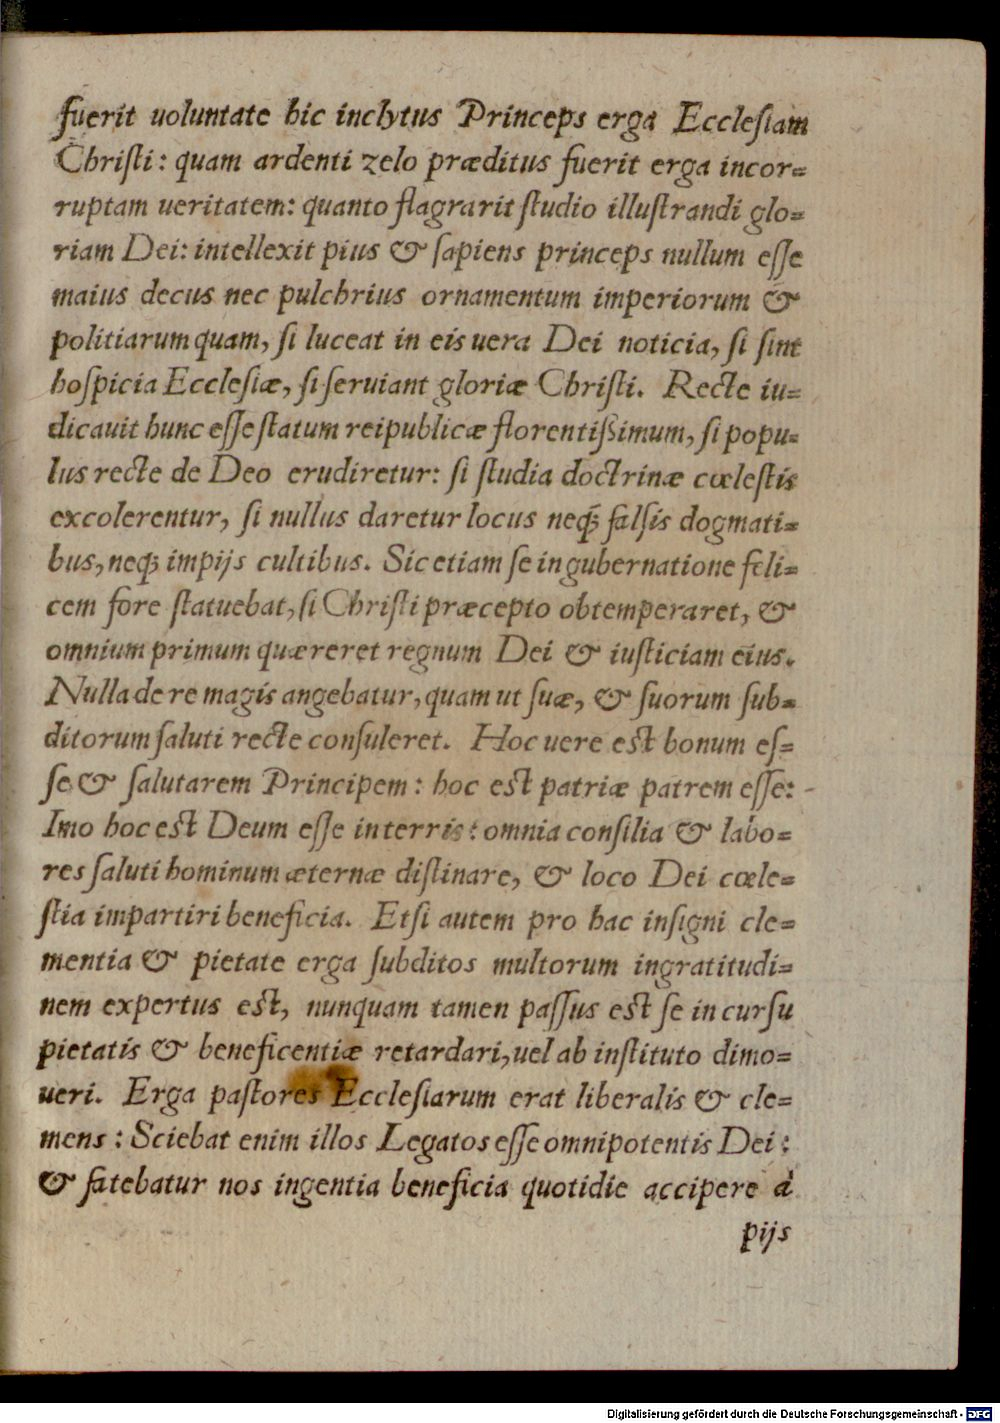 fuerit uoluntate hic inclytus Princeps erga Ecclesiam
Christi: quam ardenti zelo præditus fuerit erga incor=
ruptam ueritatem: quanto flagrarit studio illustrandi glo=
riam Dei: intellexit pius & sapiens princeps nullum esse
maius decus nec pulchrius ornamentum imperiorum &
politiarum quam, si luceat in eis uera Dei noticia, si sint
hospicia Ecclesiæ, si seruiant gloriæ Christi. Recte iu=
dicauit hunc esse statum reipublicæ florentißimum, si popu=
lus recte de Deo erudiretur: si studia doctrinæ cœlestis
excolerentur, si nullus daretur locus neq; falsis dogmati=
bus, neq; impijs cultibus. Sic etiam se in gubernatione feli=
cem fore statuebat, si Christi præcepto obtemperaret, &
omnium primum quæreret regnum Dei & iusticiam eius.
Nulla de re magis angebatur, quam ut suæ, & suorum sub=
ditorum saluti recte consuleret. Hoc uere est bonum es=
se & salutarem Principem: hoc est patriæ patrem esse:
Imo hoc est Deum esse in terris: omnia consilia & labo=
res saluti hominum æternæ distinare, & loco Dei cœle=
stia impartiri beneficia. Etsi autem pro hac insigni cle=
mentia & pietate erga subditos multorum ingratitudi=
nem expertus est, nunquam tamen passus est se in cursu
pietatis & beneficentiæ retardari, uel ab instituto dimo=
ueri. Erga pastores Ecclesiarum erat liberalis & cle=
mens: Sciebat enim illos Legatos esse omnipotentis Dei:
& fatebatur nos ingentia beneficia quotidie accipere à
pijs
Digitalisierung gefördert durch die Deutsche Forschungsgemeinschaft - DFG